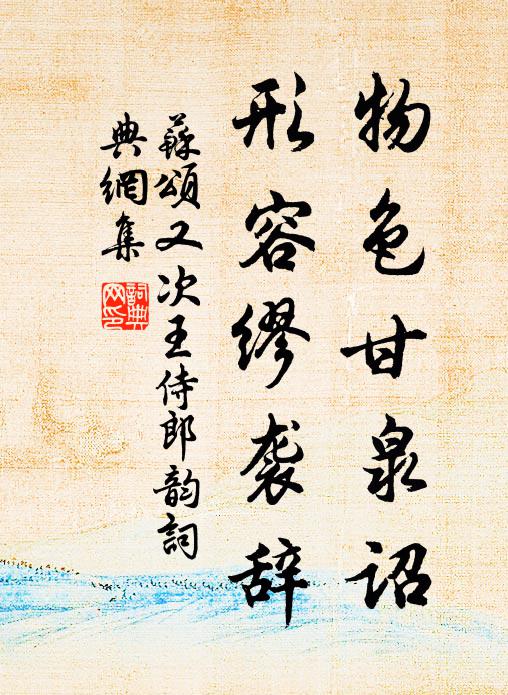 物色甘泉诏
形容缪袭辞
蘇頌又次王侍郎韵詞
典網集
詞典网印